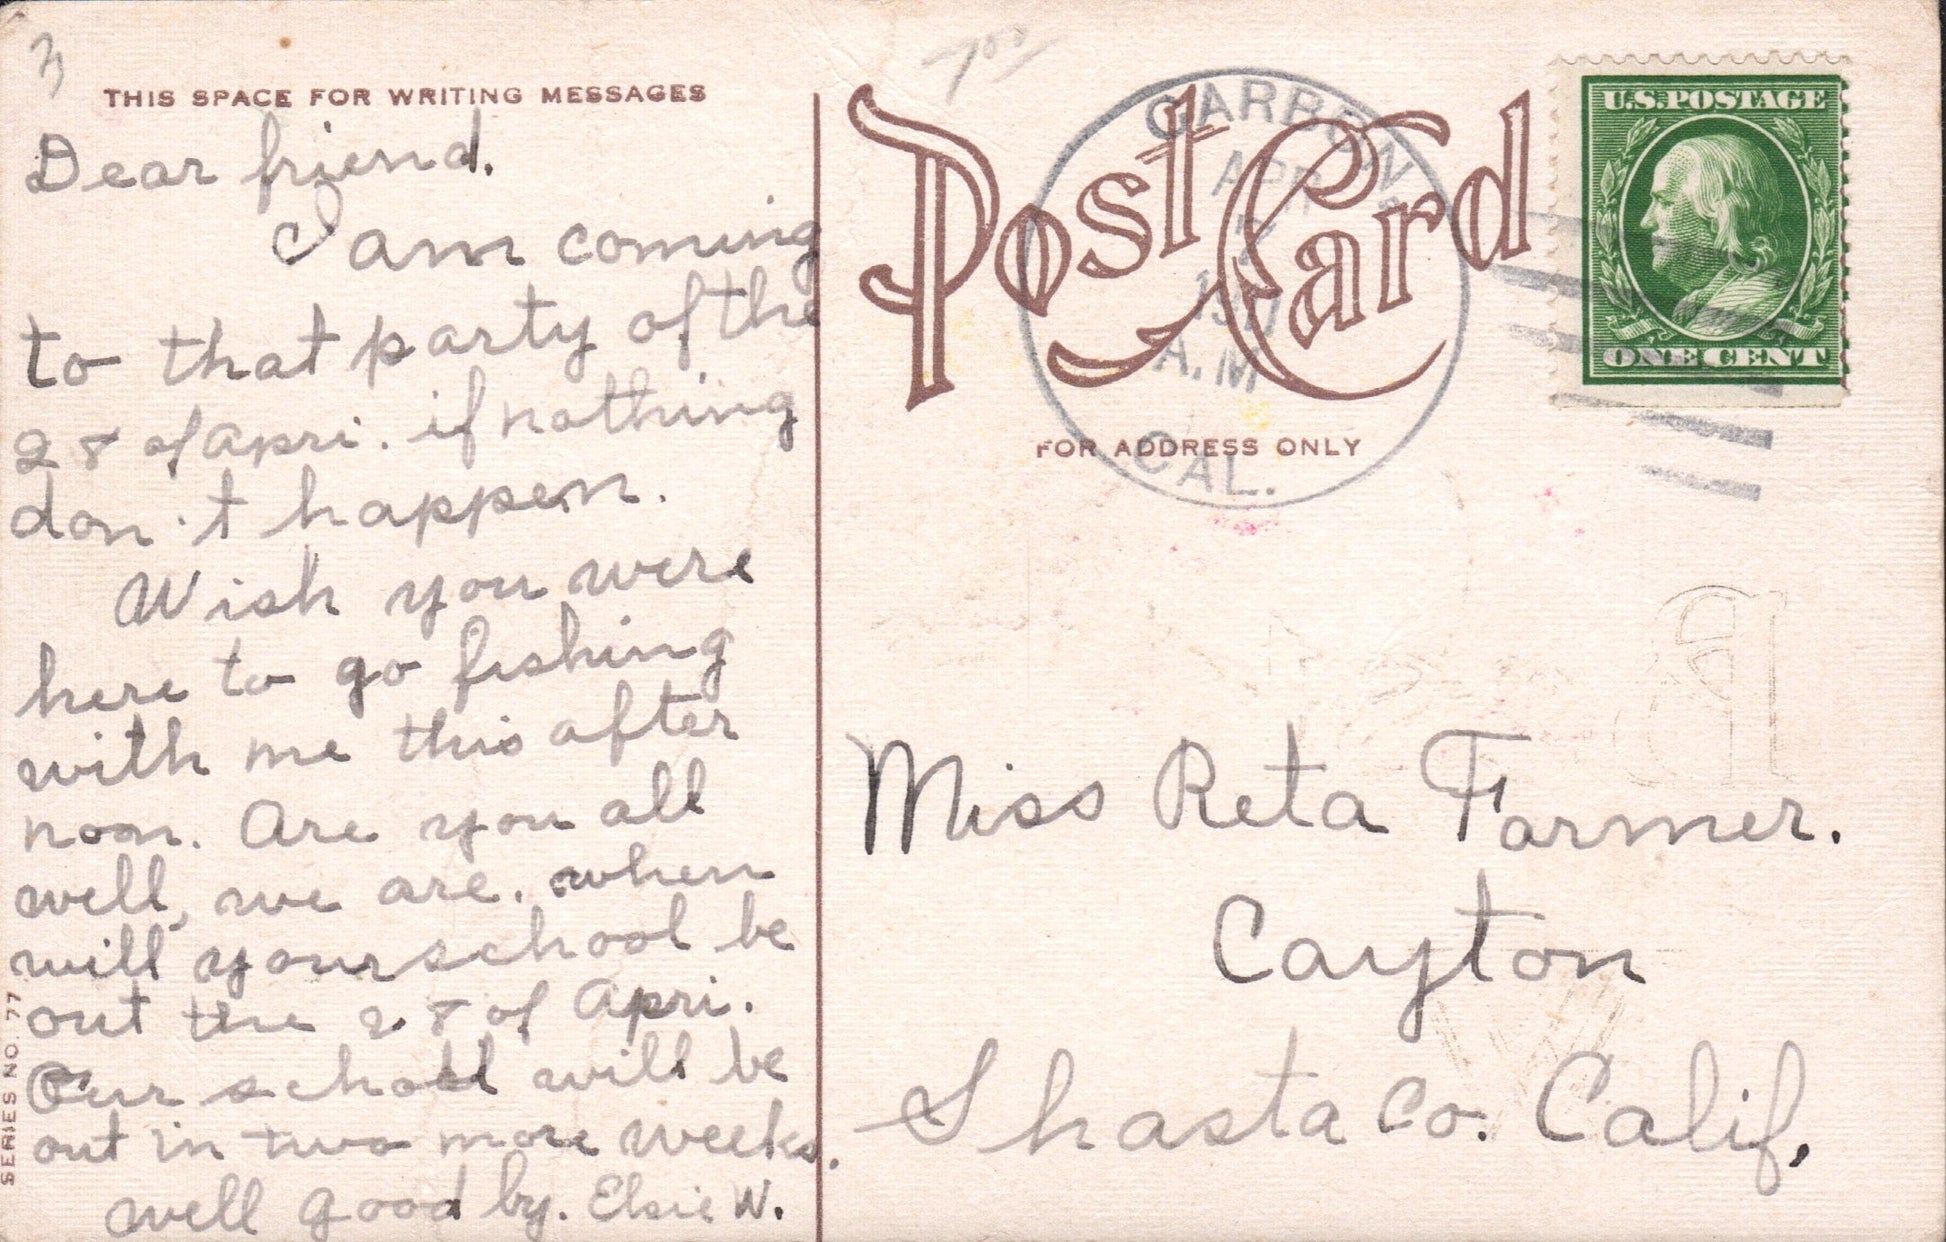 3
THIS SPACE FOR WRITING MESSAGES
Dear friend.
I am coming
to that party of the
28 of Apri. if nothing
don't happen.
Wish you were
here to go fishing
with me this after
noon. Are you all
well, we are. when
will your school be
out the 28 of Apri.
Our school will be
out in two more weeks.
well good by. Elsie W.
SERIES NO. 77
700
Post Card
FOR ADDRESS ONLY
CARBON
APR
7
A.M
CAL.
U.S. POSTAGE
ONE CENT
Miss Reta Farmer.
Cayton
Shasta Co. Calif,